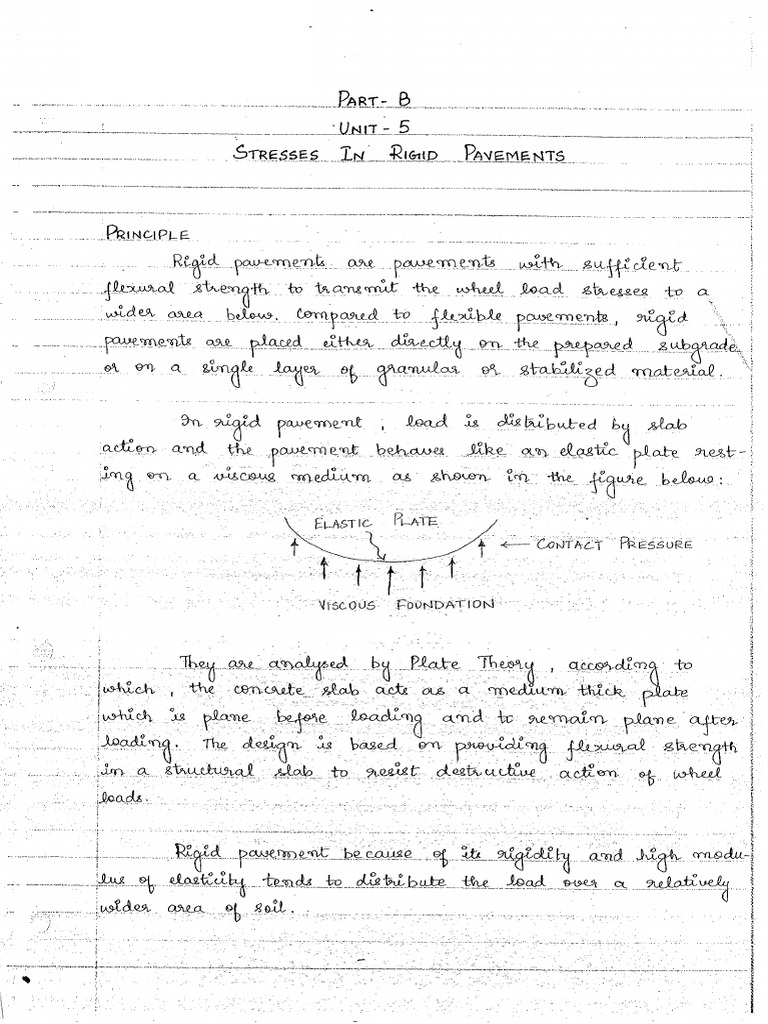 PART- B
UNIT - 5
STRESSES IN RIGID PAVEMENTS
PRINCIPLE
Rigid pavements are pavements with sufficient
flexural strength to transmit the wheel load stresses to a
wider area below. Compared to flexible pavements, rigid
pavements are placed either directly on the prepared subgrade
or on a single layer of granular or stabilized material.
In rigid pavement, load is distributed by slab
action and the pavement behaves like an elastic plate rest-
ing on a viscous medium as shown in the figure below:
ELASTIC PLATE
CONTACT PRESSURE
VISCOUS FOUNDATION
They are analysed by Plate Theory, according to
which, the concrete slab acts as a medium thick plate
which is plane before loading and to remain plane after
loading. The design is based on providing flexural strength
in a structural slab to resist destructive action of wheel
loads.
Rigid pavement because of its rigidity and high modu-
lus of elasticity tends to distribute the load over a relatively
wider area of soil.